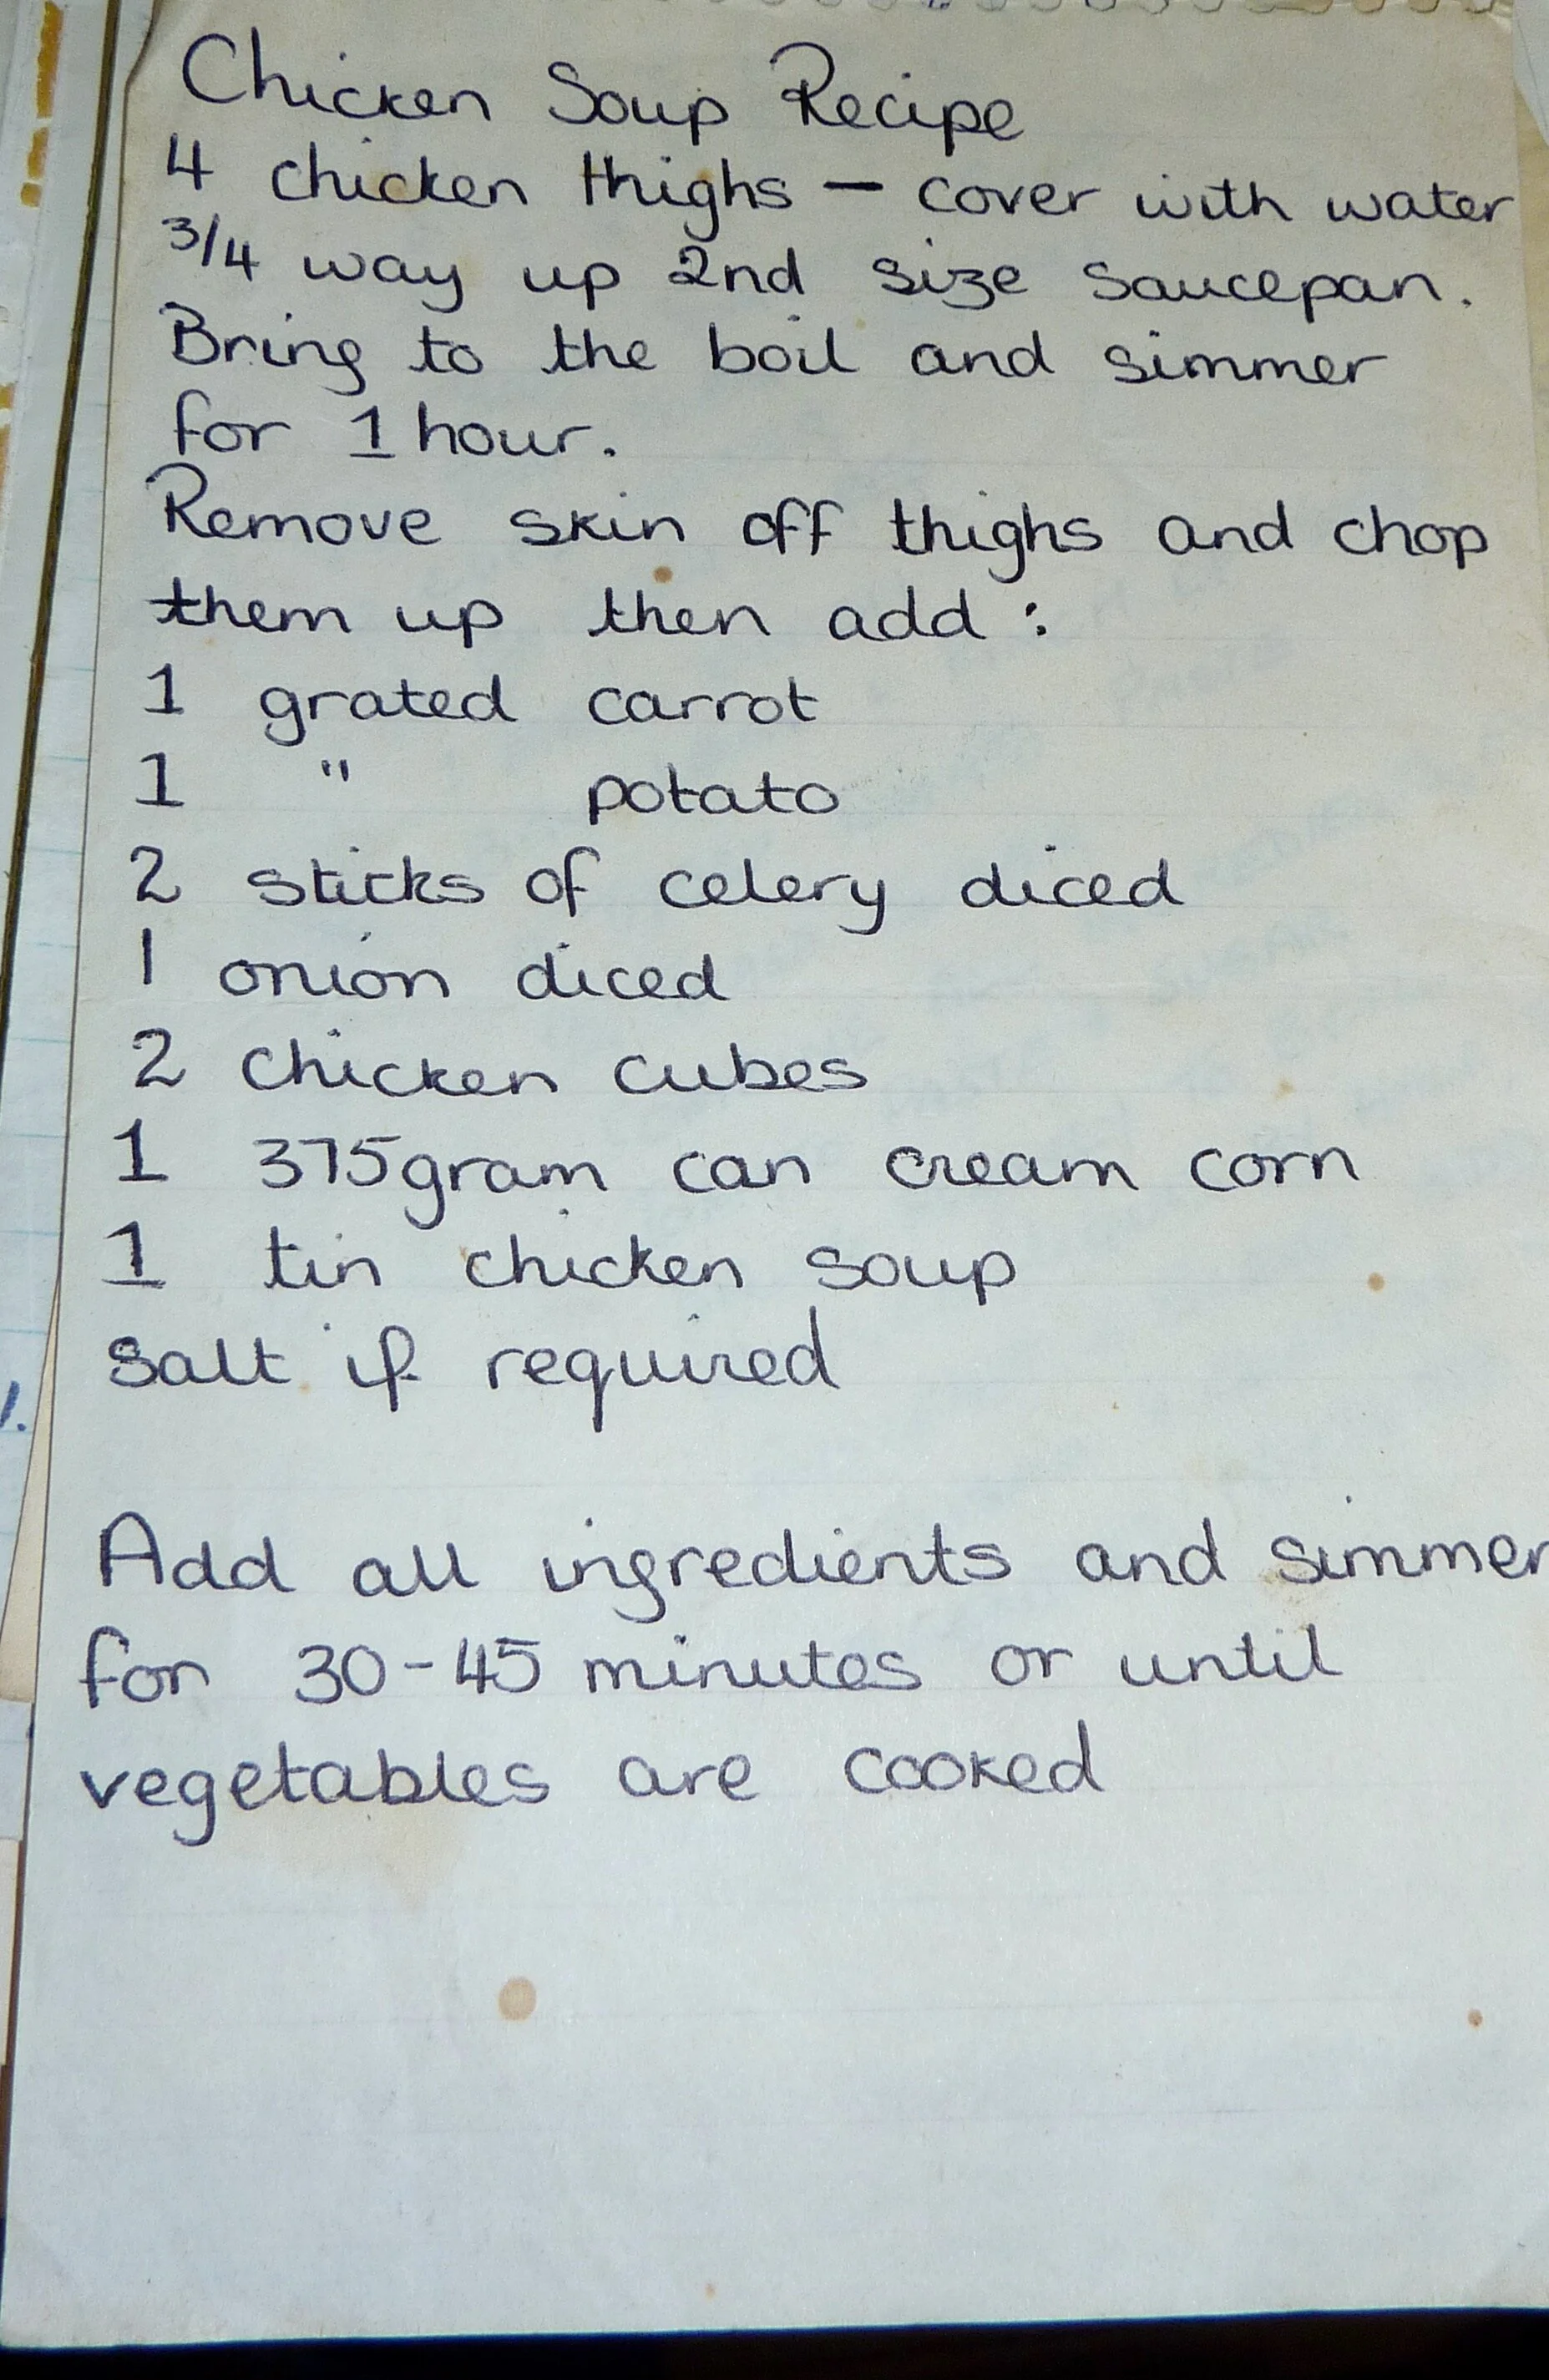 Chicken Soup Recipe
4 chicken thighs – cover with water
3/4 way up 2nd size saucepan.
Bring to the boil and simmer
for 1 hour.
Remove skin off thighs and chop
them up then add :
1 grated carrot
1 " potato
2 sticks of celery diced
1 onion diced
2 chicken cubes
1 375gram can cream corn
1 tin chicken soup
salt if required
Add all ingredients and simmer
for 30-45 minutes or until
vegetables are cooked